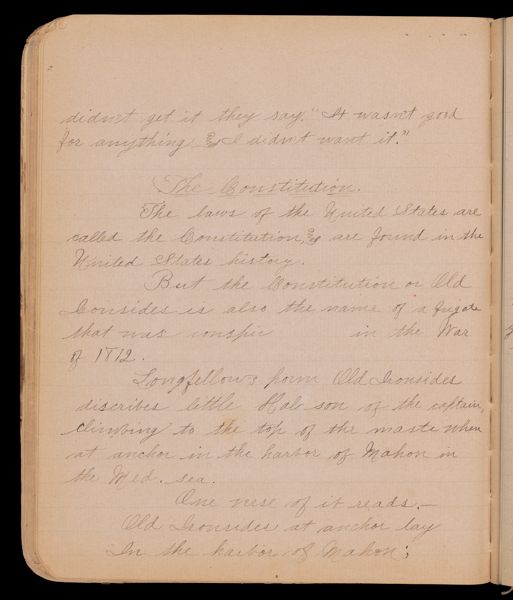 didn't get it they say. "It wasn't good
for anything & I didn't want it."
The Constitution.
The laws of the United States are
called the Constitution, & are found in the
United States history.
But the Constitution or Old
Ironsides is also the name of a frigate
that was conspic in the War
of 1812.
Longfellow's poem Old Ironsides
discribes little Hal son of the captain,
climbing to the top of the maste when
at anchor in the harbor of Mahon in
the Med. sea.
One verse of it reads.—
Old Ironsides at anchor lay
In the harbor of Mahon;